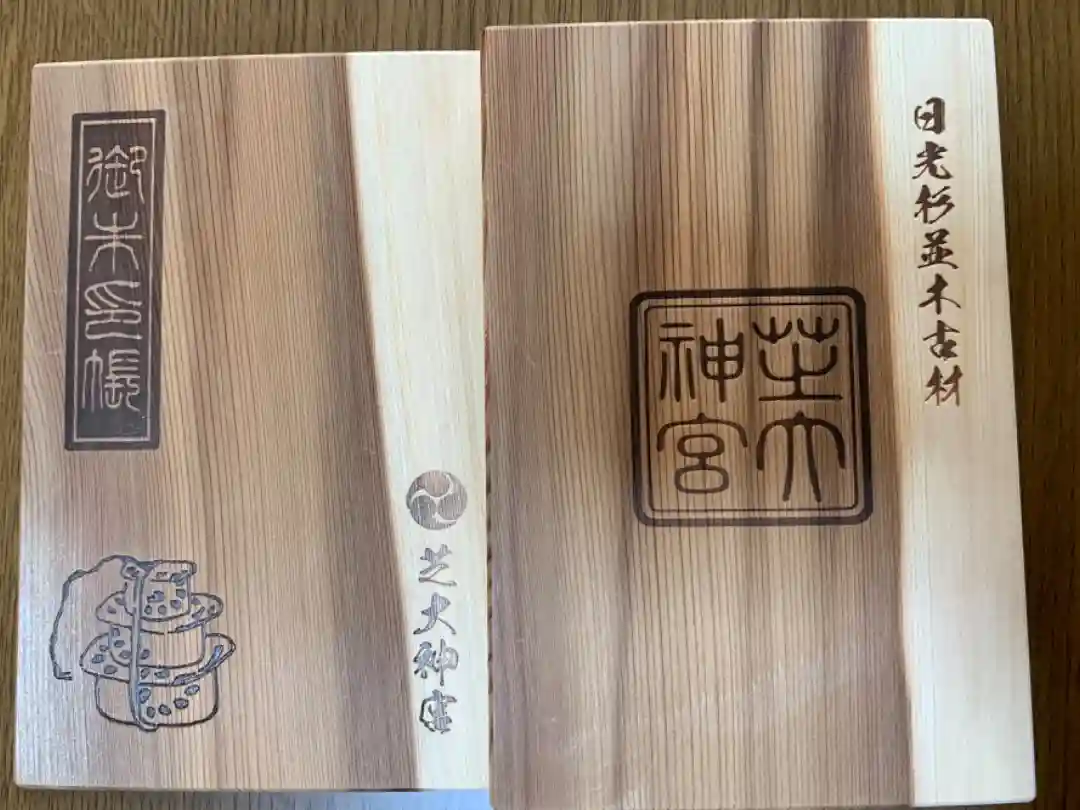 御朱印帳
芝大神宮
日光杉並木古材
芝大
神宮